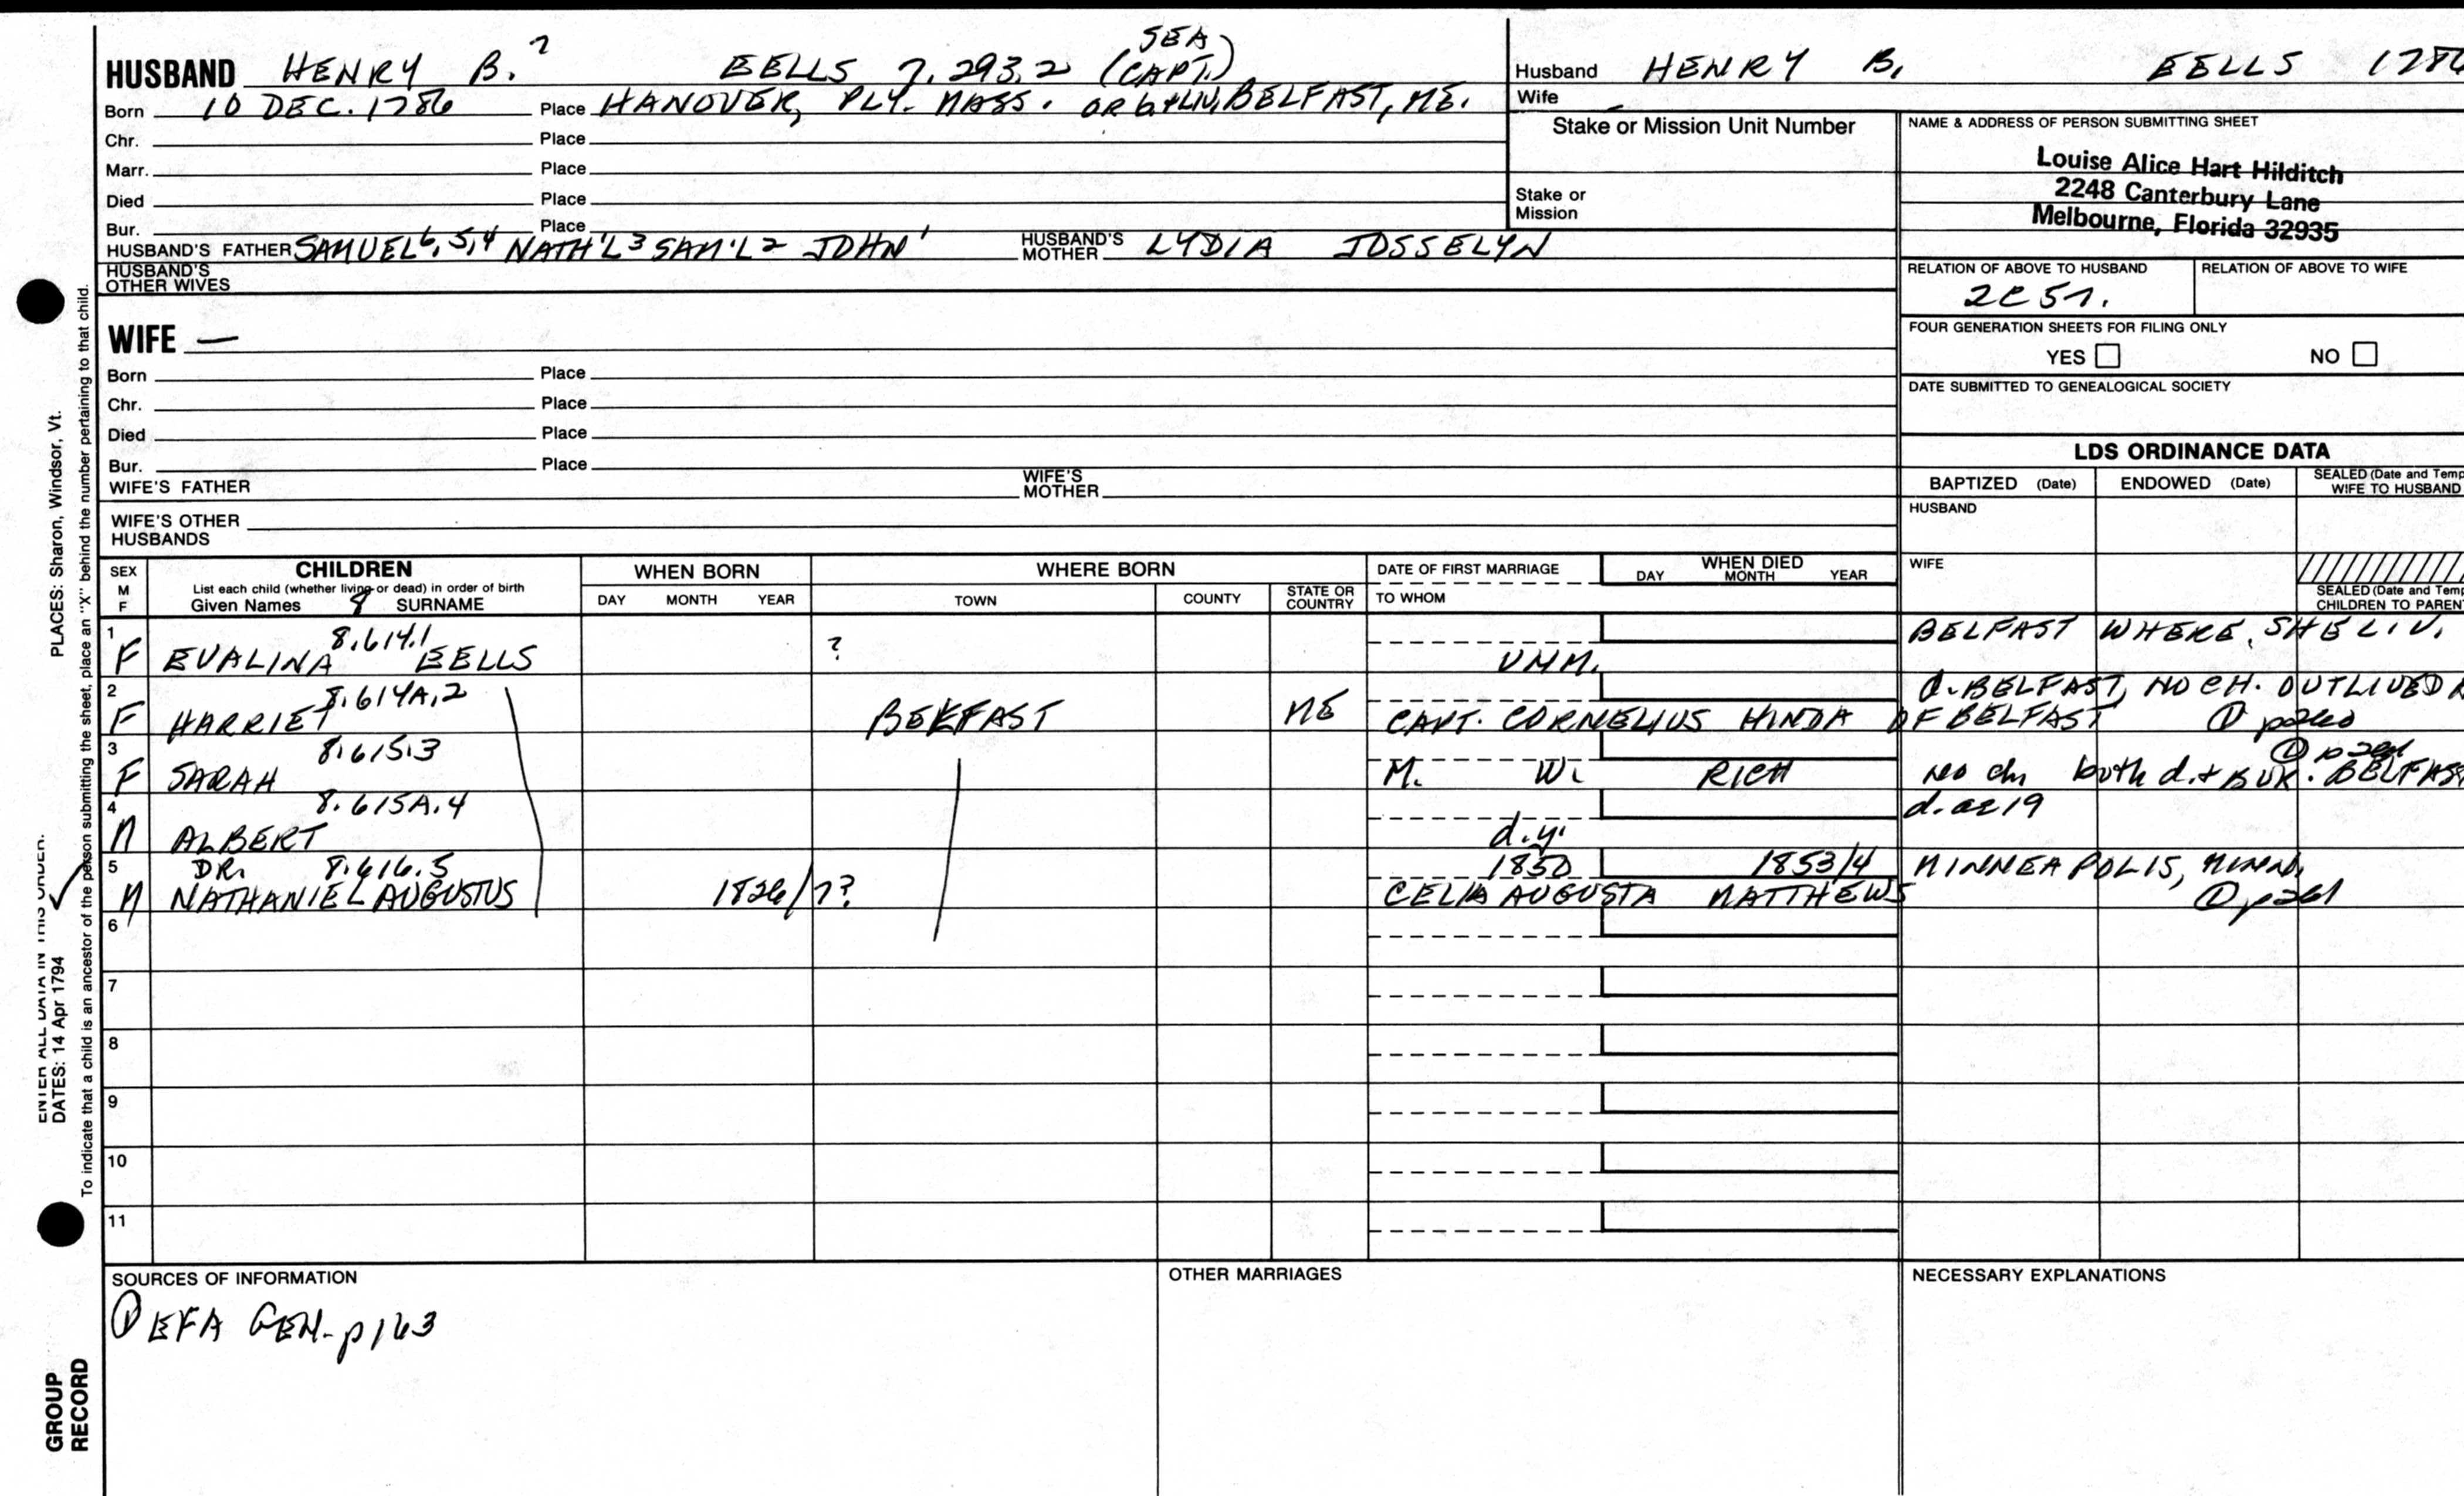 HUSBAND HENRY B.7 EELLS 7.293.2 (SEA CAPT.)
Born 10 DEC. 1786 Place HANOVER, PLY. MASS. OR b+LIV, BELFAST, ME.
Chr. Place
Marr. Place
Died Place
Bur. Place
HUSBAND'S FATHER SAMUEL6,5,4 NATH'L3 SAM'L2 JOHN1 HUSBAND'S MOTHER LYDIA JOSSELYN
HUSBAND'S OTHER WIVES
WIFE —
Born Place
Chr. Place
Died Place
Bur. Place
WIFE'S FATHER WIFE'S MOTHER
WIFE'S OTHER HUSBANDS
Husband HENRY B. EELLS 1786
Wife
Stake or Mission Unit Number
Stake or Mission
NAME & ADDRESS OF PERSON SUBMITTING SHEET
Louise Alice Hart Hilditch
2248 Canterbury Lane
Melbourne, Florida 32935
RELATION OF ABOVE TO HUSBAND RELATION OF ABOVE TO WIFE
2C5
FOUR GENERATION SHEETS FOR FILING ONLY
YES NO
DATE SUBMITTED TO GENEALOGICAL SOCIETY
LDS ORDINANCE DATA
BAPTIZED (Date) ENDOWED (Date) SEALED (Date and Temp
WIFE TO HUSBAND
HUSBAND
WIFE
SEALED (Date and Temp
CHILDREN TO PAREN
SEX M F CHILDREN WHEN BORN WHERE BORN DATE OF FIRST MARRIAGE WHEN DIED
List each child (whether living or dead) in order of birth
Given Names 8 SURNAME DAY MONTH YEAR TOWN COUNTY STATE OR COUNTRY TO WHOM DAY MONTH YEAR
1 8.614.1 BELFAST WHERE SHE LIV.
F EVALINA EELLS ? UNM.
2 8.614A.2 d. BELFAST, NO CH. OUTLIVED
F HARRIET BELFAST ME CAPT. CORNELIUS HINDA OF BELFAST ① p260
3 8.615.3 ① p261
F SARAH M. W. RICH no ch both d. + BUR. BELFAST
4 8.615A.4 d. ae 19
M ALBERT d.y.
5 DR. 8.616.5 1850 1853/4 MINNEAPOLIS, MINN.
M NATHANIEL AUGUSTUS 1826/7? CELIA AUGUSTA MATTHEWS ① p261
6
7
8
9
10
11
SOURCES OF INFORMATION OTHER MARRIAGES NECESSARY EXPLANATIONS
① EFA GEN. p163
ENTER ALL DATA IN THIS ORDER.
DATES: 14 Apr 1794 PLACES: Sharon, Windsor, Vt.
To indicate that a child is an ancestor of the person submitting the sheet, place an "X" behind the number pertaining to that child.
GROUP
RECORD